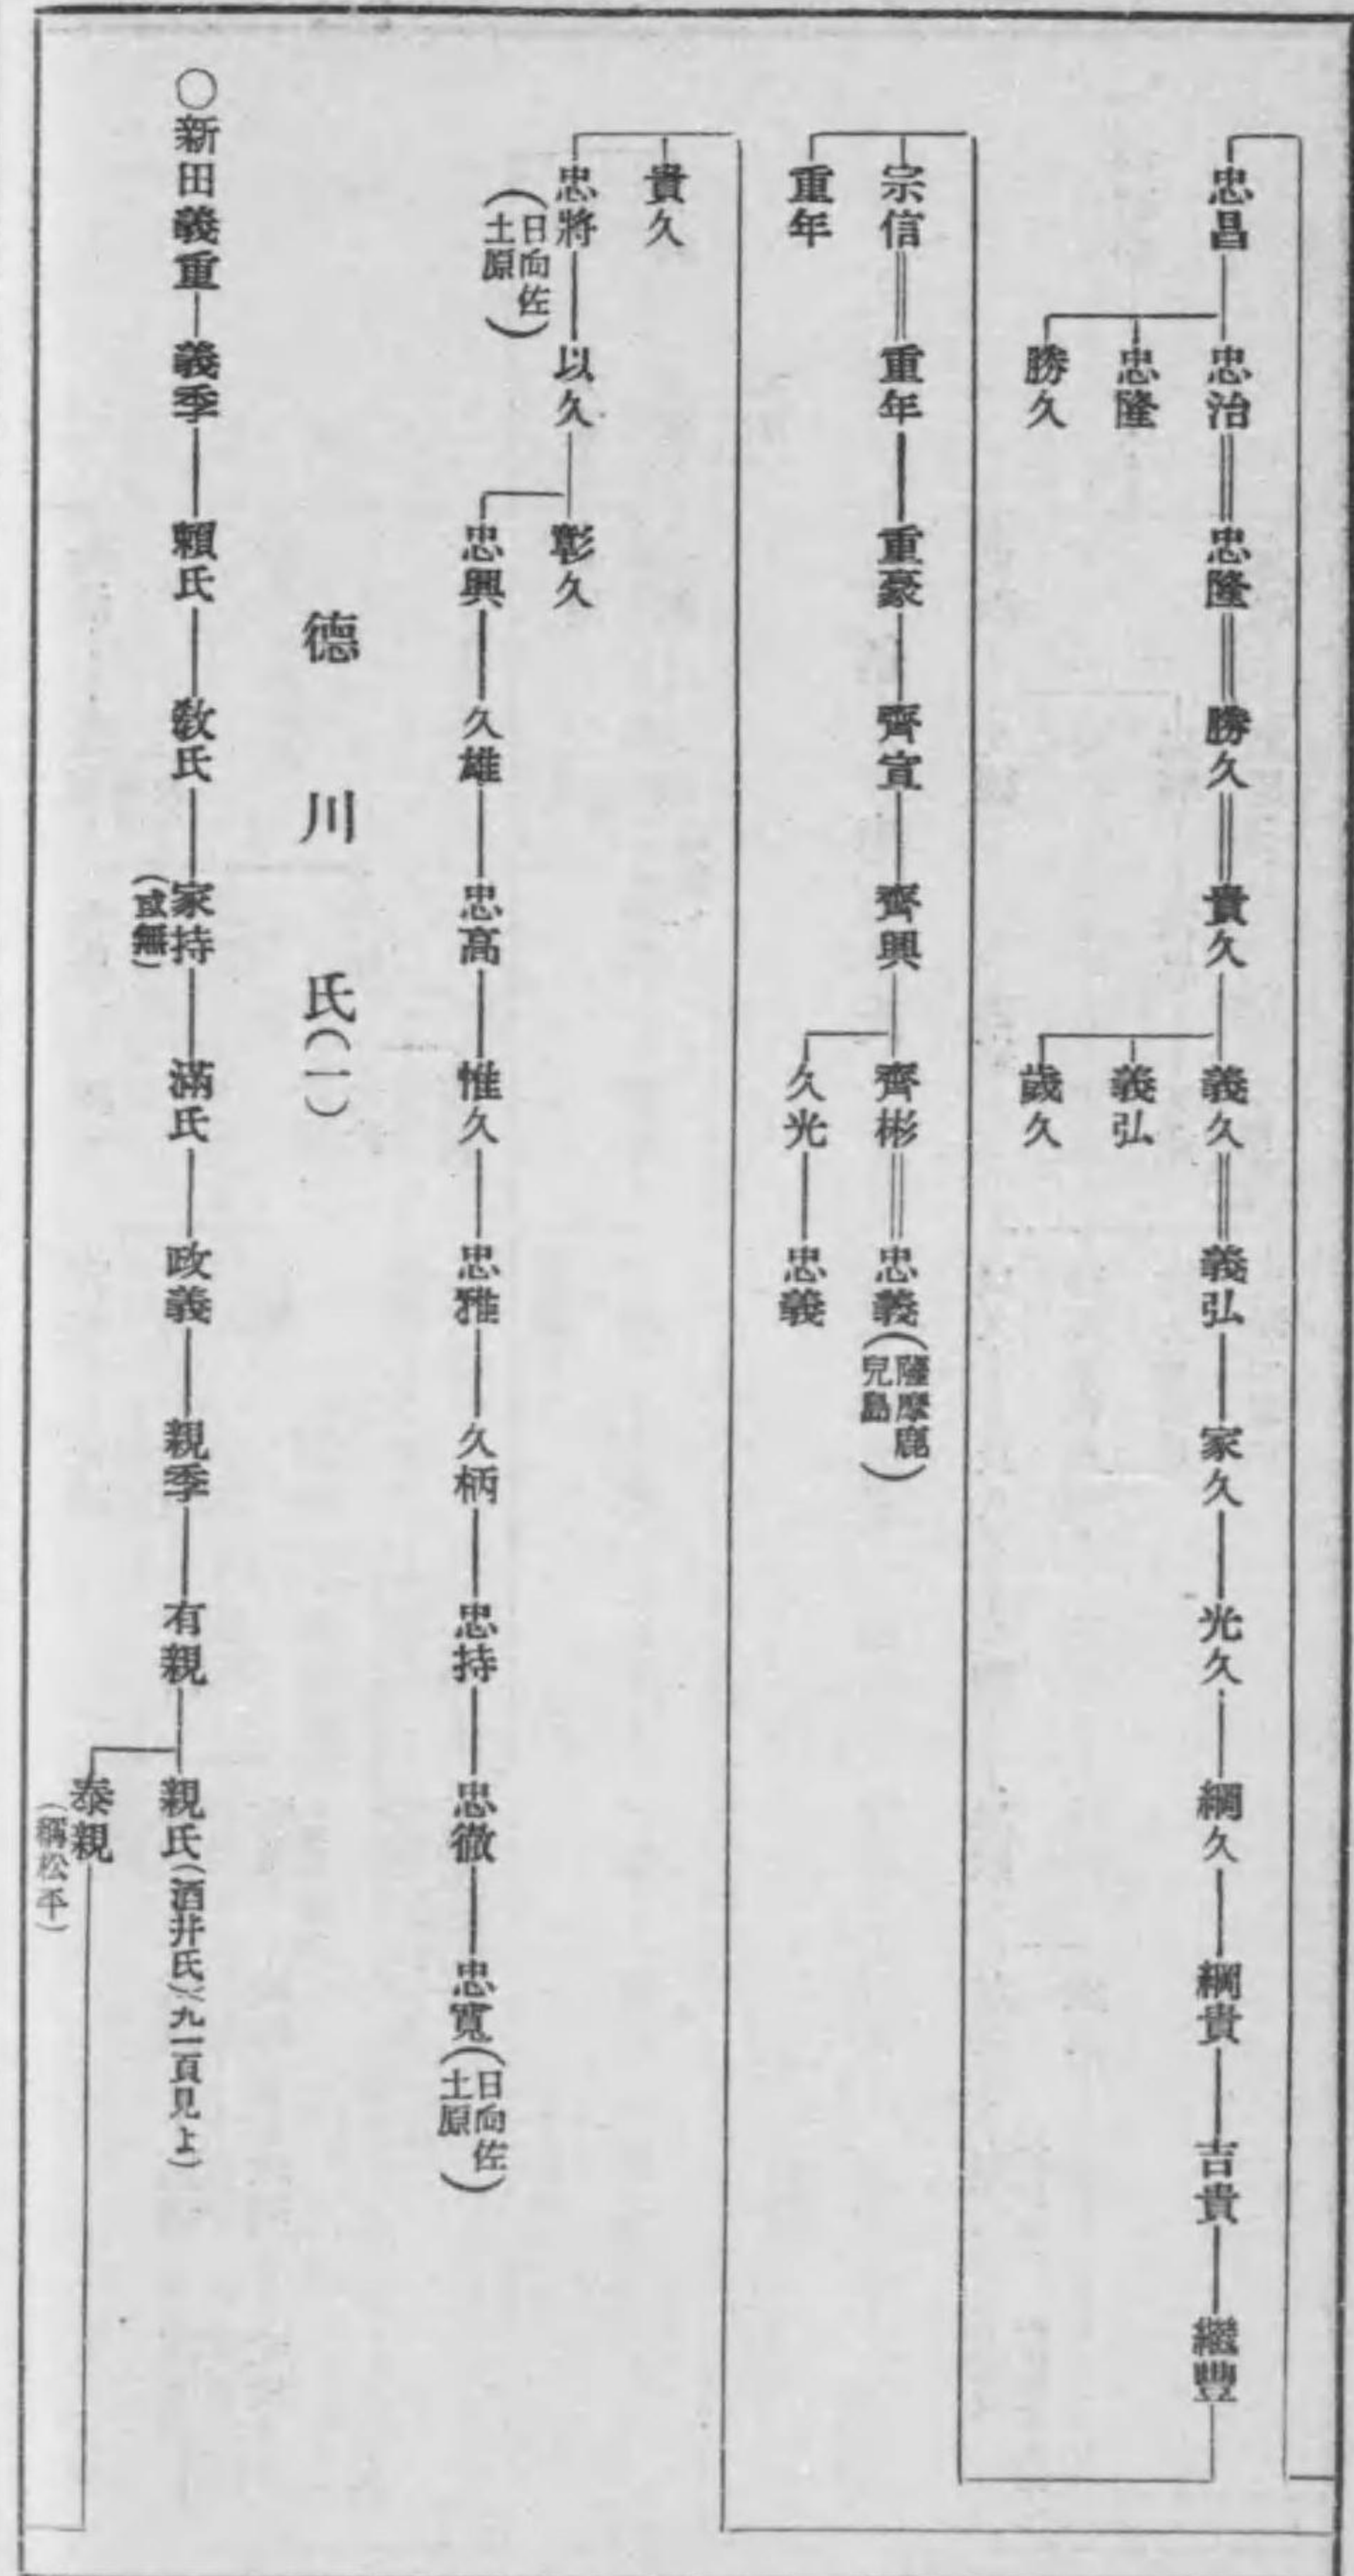 忠昌 忠治 忠隆 勝久 貴久 義久 義弘 家久 光久 綱久 綱貴 吉貴 繼豐
忠隆 義弘
勝久 歲久
宗信 重年 重豪 齊宣 齊興 齊彬 忠義(薩摩鹿兒島)
重年 久光 忠義
貴久
忠將(日向佐土原) 以久 彰久
忠興 久雄 忠高 惟久 忠雅 久柄 忠持 忠徹 忠寬(日向佐土原)
德川氏(一)
○新田義重 義季 賴氏 敎氏 家持(或無) 滿氏 政義 親季 有親 親氏(酒井氏)(九一頁見よ)
泰親(稱松平)